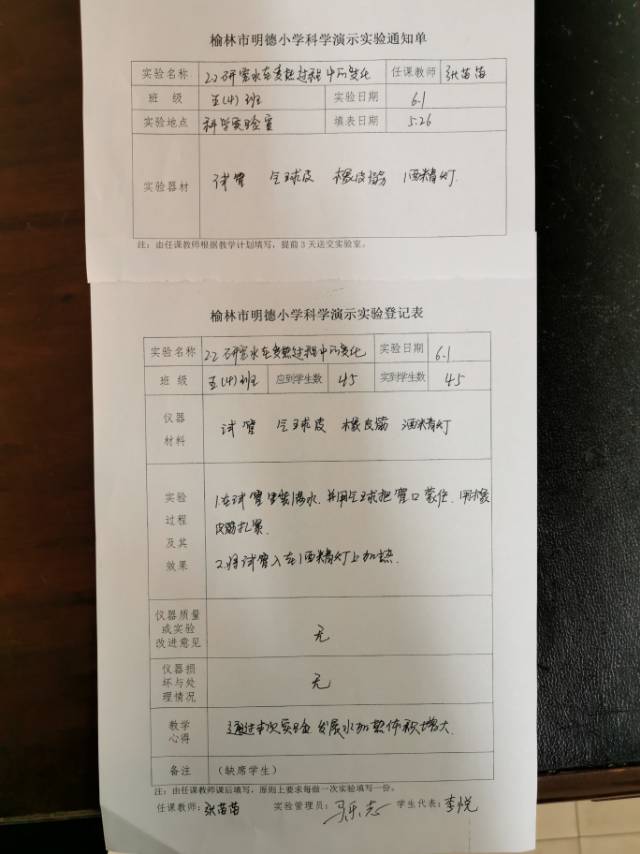 榆林市明德小学科学演示实验通知单
实验名称 22研究水在变热过程中的变化 任课教师 张苗苗
班 级 五(4)班 实验日期 6.1
实验地点 科学实验室 填表日期 5.26
实验器材 试管 气球皮 橡皮筋 酒精灯.
注：由任课教师根据教学计划填写，提前3天送交实验室。
榆林市明德小学科学演示实验登记表
实验名称 22研究水在变热过程中的变化 实验日期 6.1
班 级 五(4)班 应到学生数 45 实到学生数 45
仪器材料 试管 气球皮 橡皮筋 酒精灯
实验过程及其效果
1.在试管里装满水，并用气球把管口蒙住，用橡
皮筋扎紧.
2.将试管入在酒精灯上加热.
仪器质量或实验改进意见 无
仪器损坏与处理情况 无
教学心得 通过本次实验，发展水加热体积增大.
备注 （缺席学生）
注：由任课教师课后填写，原则上要求每做一次实验填写一份。
任课教师：张苗苗 实验管理员： 学生代表：李悦